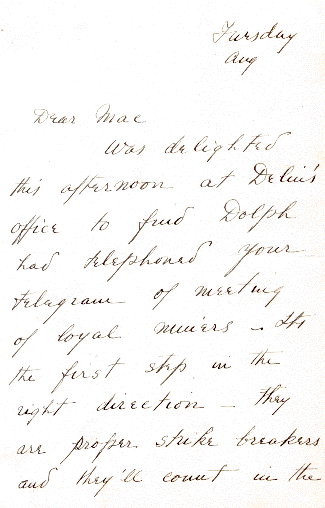 Tuesday
Aug
Dear Mac
Was delighted
this afternoon at Delius'
office to find Dolph
had telephoned your
telegram of meeting
of loyal miners - Its
the first step in the
right direction - they
are proper strike breakers
and they'll count in the